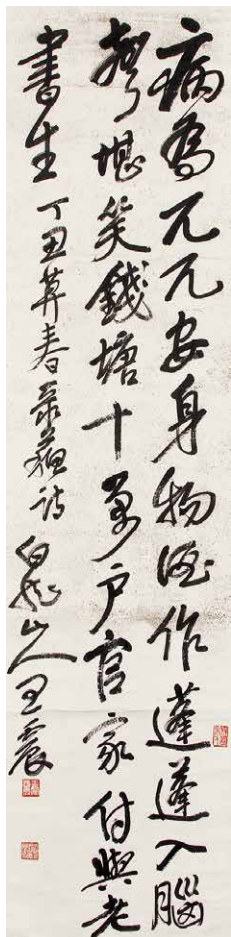 病為兀兀安身物酒作蓬蓬入腦
聲堪笑錢塘十萬戶官家付與老
書生 丁丑莫春录蘇詩 白龍山人王震